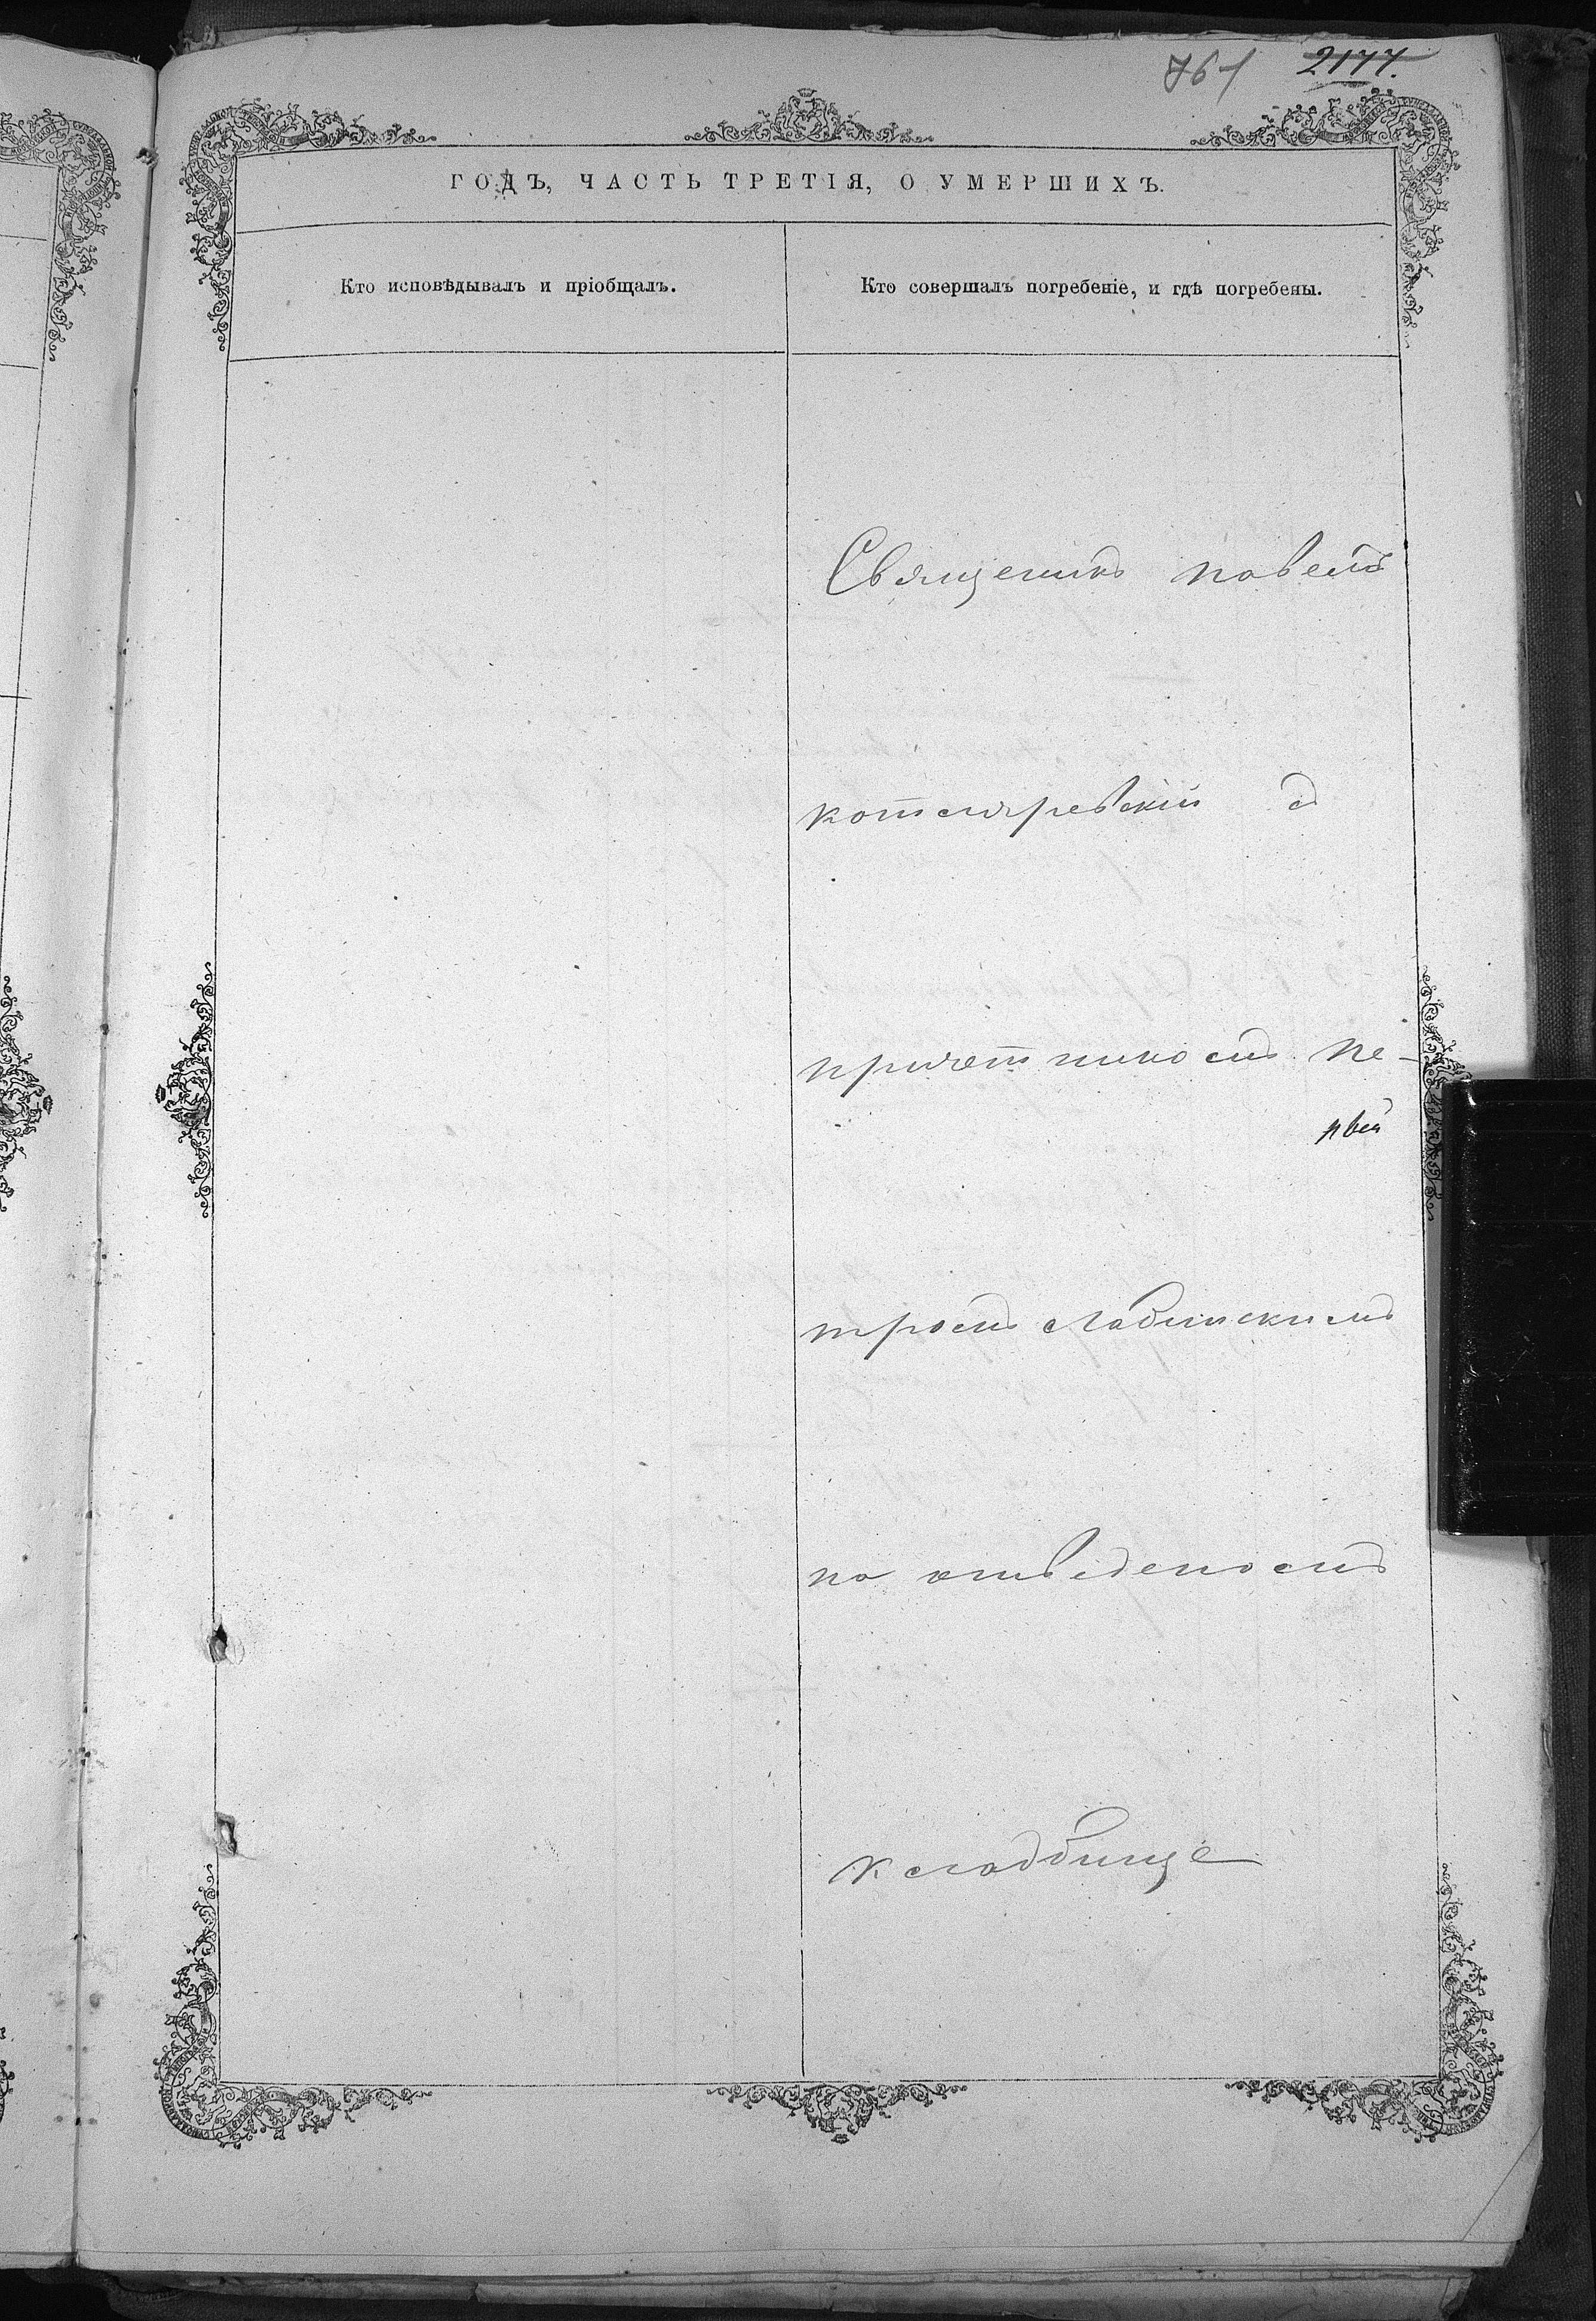 761 2177.
ГОДЪ, ЧАСТЬ ТРЕТІЯ, О УМЕРШИХЪ.
Кто исповѣдывалъ и пріобщалъ.
Кто совершалъ погребеніе, и гдѣ погребены.
Священикъ павелъ
котляревскій съ
причетникомъ Пе-
тромъ слабинскимъ
на отведеномъ
кладбище